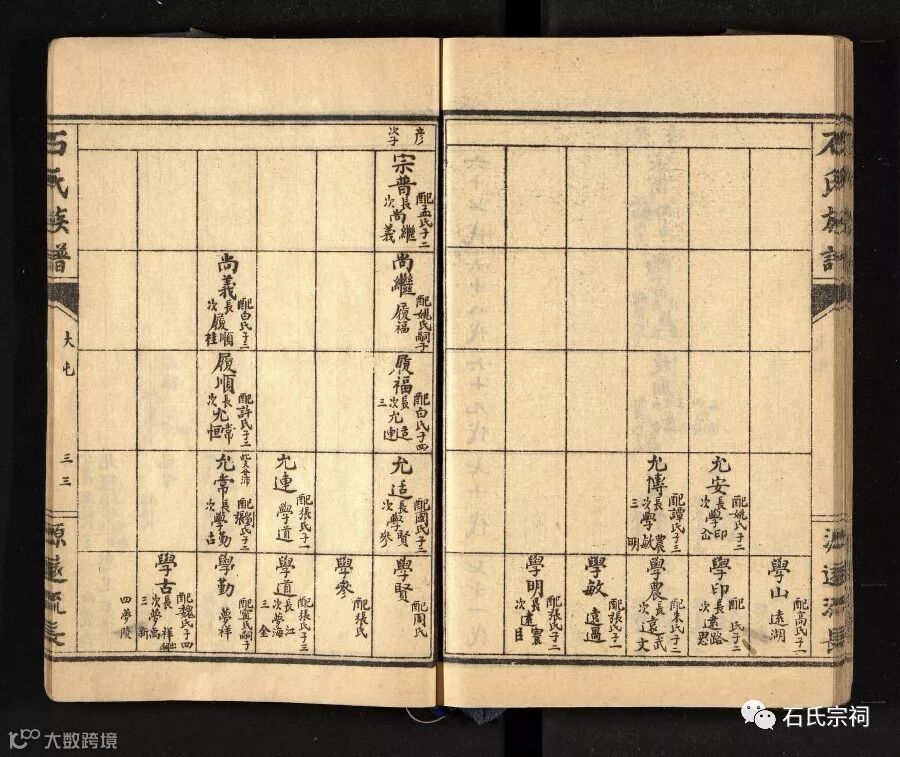 石氏族譜
源遠流長
允安
配姚氏子二
長學印
允傳
配譚氏子三
長學農
次學敏
三明
學山
配高氏子一
遠湖
學印
配 氏子二
長遠路
次思
學農
配朱氏子二
長遠武
次文
學敏
配張氏子一
遠過
學明
配張氏子二
長遠寰
次
彦
次子
宗普
配孟氏子二
長尚繼
次義
尚繼
配姚氏嗣子
履福
尚義
配白氏子二
長履順
次桂
履福
配白氏子四
長允适
次連
三
履順
配許氏子二
長允常
次恒
允适
配國氏子二
長學賢
次參
允連
配張氏子一
學道
允常
配劉張氏子二
長學勤
次古
學賢
配周氏
學參
配張氏
學道
配張氏子三
長夢江
次海
三金
學勤
配甯氏嗣子
夢祥
學古
配魏氏子四
長夢祥
次禹
三新
四夢陵
石氏族譜
大屯
三三
源遠流長
石氏宗祠
大数跨境